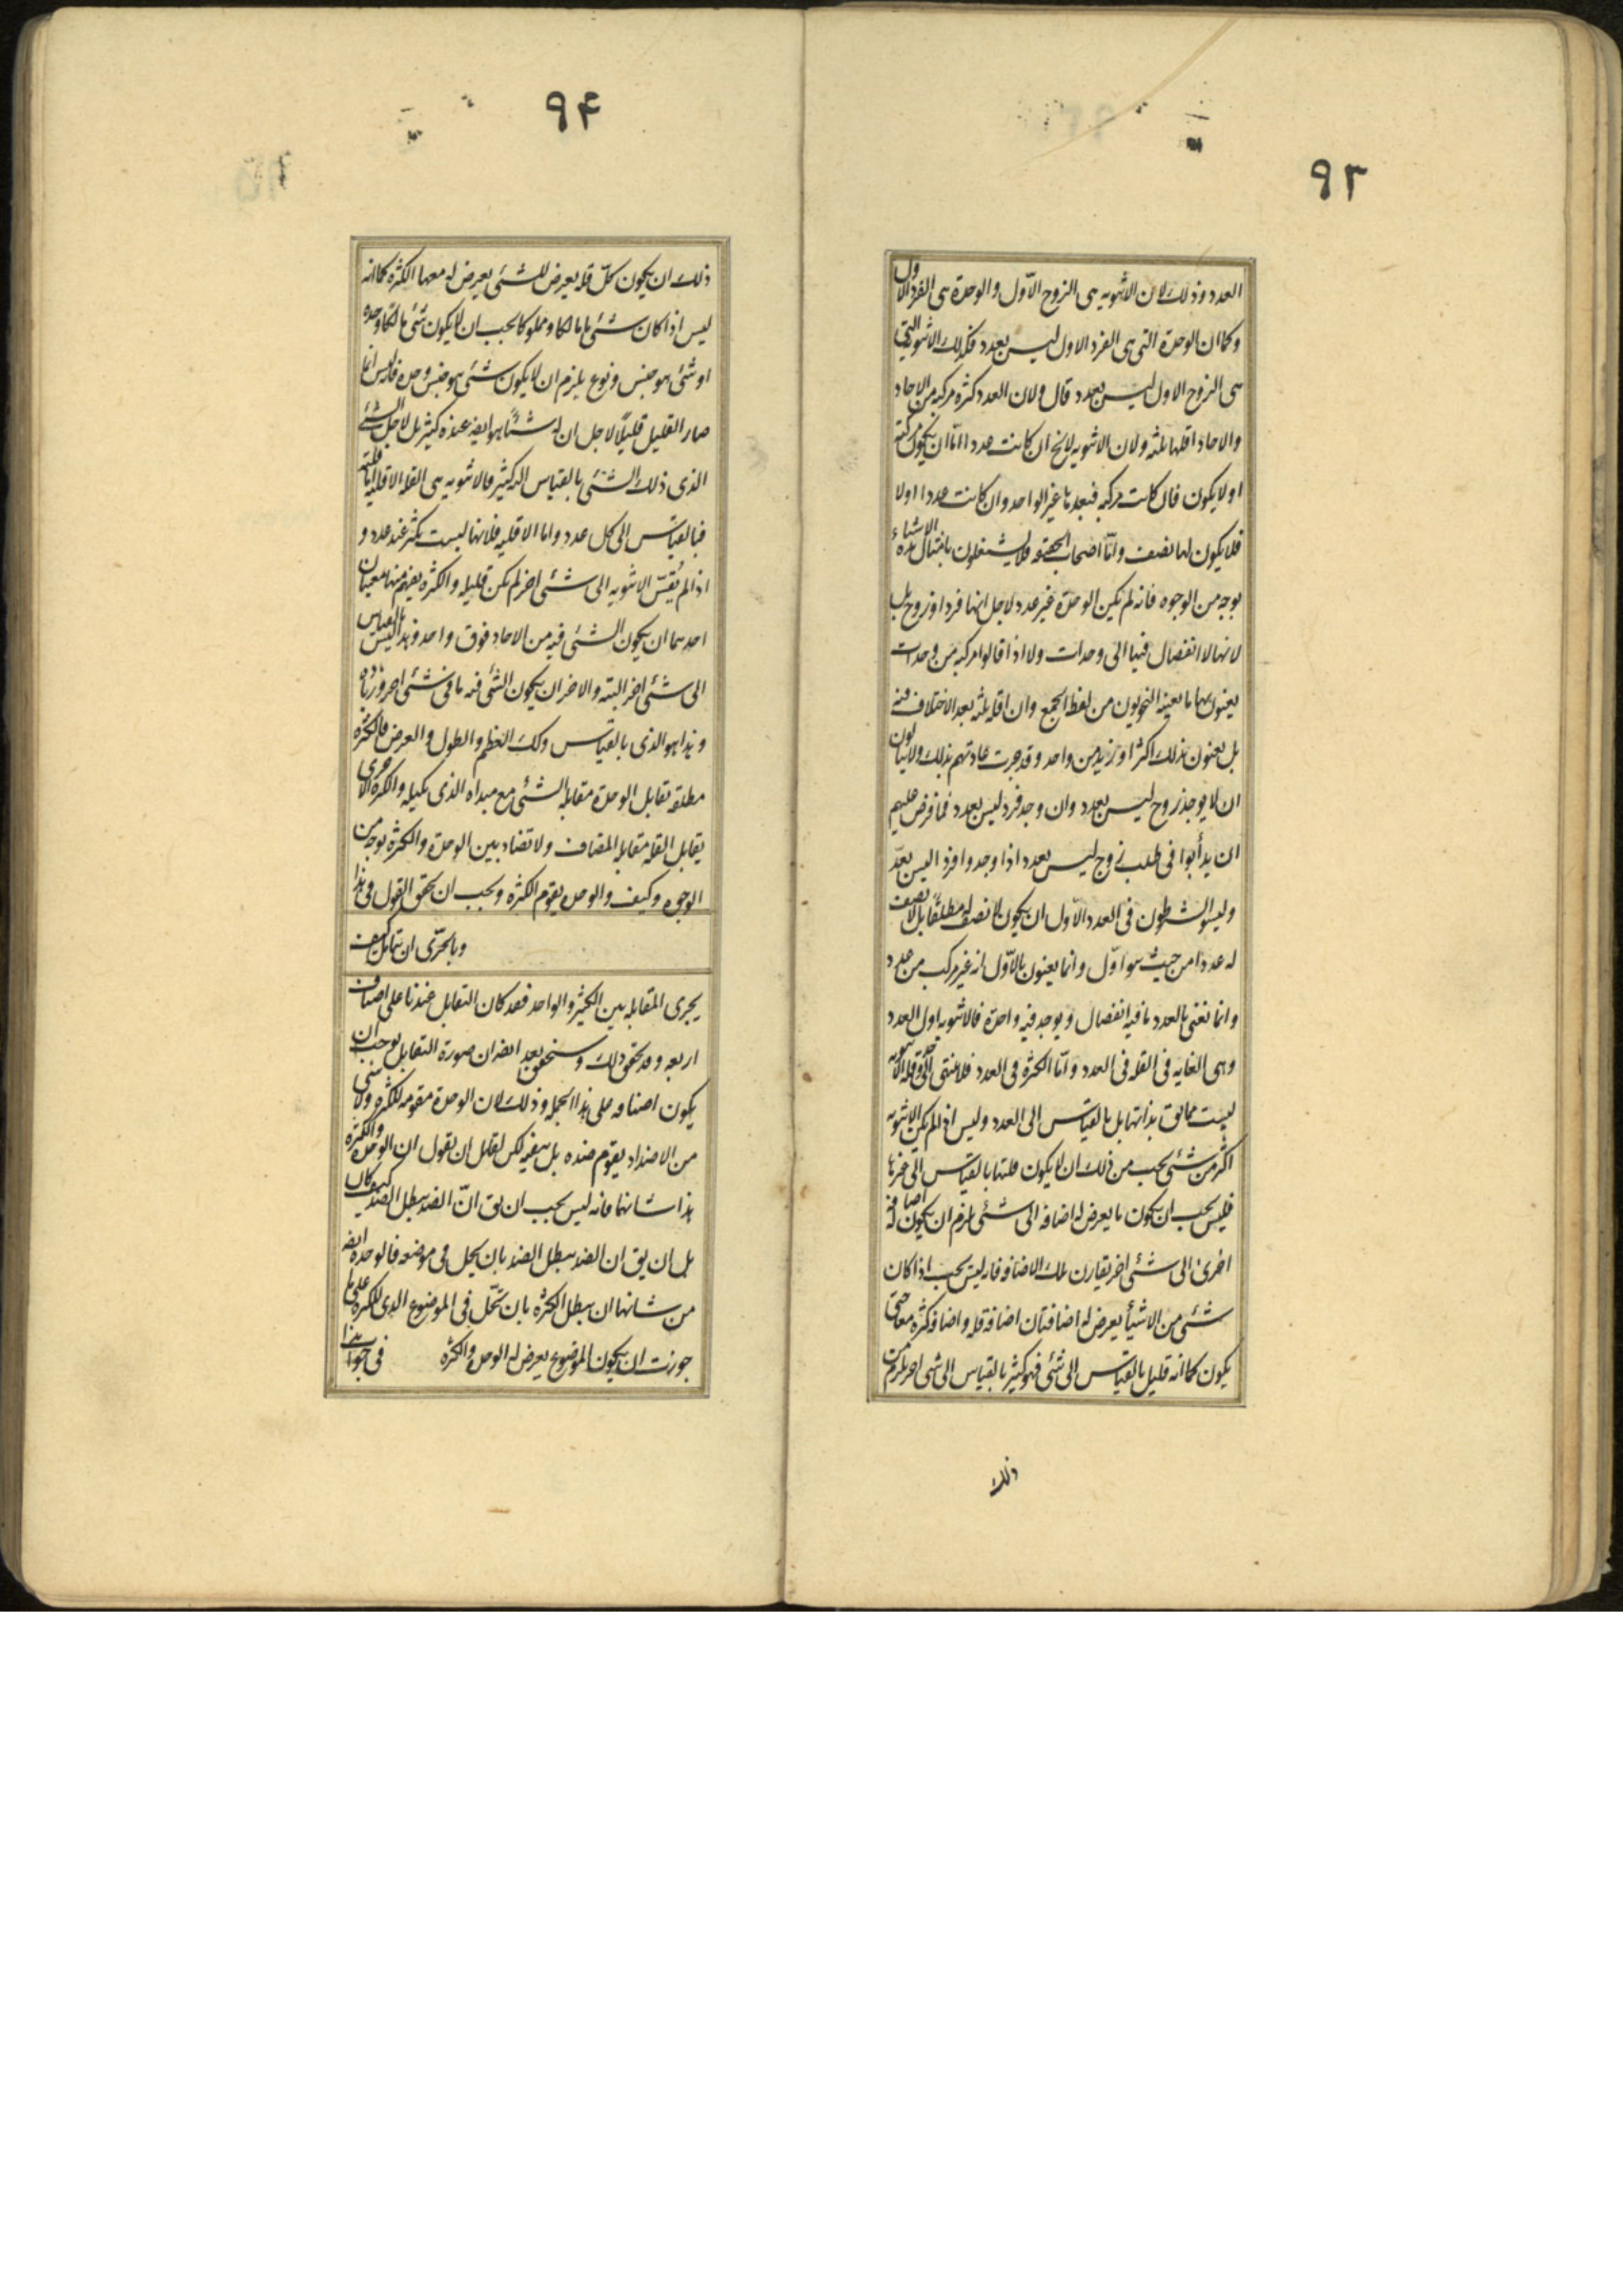 ٩٣
العدد وذلك لان الاثنوه هى الزوج الاوّل والوحدة هى الفرد الاول
وكما ان الوحدة التى هى الفرد الاول ليس بعدد فكذلك الاثنوه التى
هى الزوج الاول ليس بعدد قال ولان العدد كثره مركبه من الاحاد
والاحاد اقلها ثلثه ولان الاثنويه لايخ ان كانت عددا امّا ان يكون مركبه
اولا يكون فان كانت مركبه فبعدها غير الواحد وان كانت عددا اولا
فلا يكون لها نصف وامّا اصحاب الحقيقه فلا يشتغلون بامثال هذه الاشياء
بوجه من الوجوه فانه لم يكن الوحدة غير عدد لاجل انها فرد او زوج بل
لانها لا انفصال فيها الى وحدات ولا اذا قالوا مركبه من وحدات
يعنون بها ما يعنيه النحويون من لفظ الجمع وان اقله ثلثه بعد الاختلاف فيه
بل يعنون بذلك اكثر او ازيد من واحد وقد جرت عادتهم بذلك ولا يبالون
ان لا يوجد زوج ليس بعدد وان وجد فرد ليس بعدد فما فرض عليهم
ان يدأبوا فى طلب زوج ليس بعدد اذا وجدوا فردا ليس بعدد
وليسوا يشترطون فى العدد الاوّل ان يكون لا نصف له مطلقًا بل لا نصف
له عددا من حيث هو اوّل وانما يعنون بالاوّل انه غير مركب من عدد
وانما نعنى بالعدد ما فيه انفصال ويوجد فيه واحدة فالاثنوه اول العدد
وهى الغايه فى القله فى العدد وامّا الكثرة فى العدد فلا ينتهى الى حد وقله الاثنويه
ليست مما يق بذاتها بل بالقياس الى العدد وليس اذ لم يكن الاثنويه
اكثر من شئى يجب من ذلك ان لا يكون قلتها بالقياس الى غيرها
فليس يجب ان يكون ما يعرض له اضافه الى شئى يلزم ان يكون له اضافه
اخرى الى شئى اخر يقارن تلك الاضافه فانه ليس يجب اذا كان
شئى من الاشيأ يعرض له اضافتان اضافة قله واضافه كثره معا حتى
يكون كما انه قليل بالقياس الى شئى فهو كثير بالقياس الى شئى اخر يلزم من
ذلك
٩۴
ذلك ان يكون كلّ قله يعرض للشئى يعرض له معها الكثره كما انه
ليس اذا كان شئى ما مالكا ومملوكا يجب ان لا يكون شئى مالكا وحده
او شئى هو جنس ونوع يلزم ان لا يكون شئى هو جنس وحده فانه ليس انما
صار القليل قليلًا لاجل ان له شئًا هو ايضه عنده كثير بل لاجل الشئ
الذى ذلك الشئى بالقياس اليه كثير فالاثنويه هى القله الاقليه اما قلتها
فبالقياس الى كل عدد واما الاقليه فلانها ليست بكثر عند عدد و
اذا لم يُقسّ الاثنويه الى شئى اخر لم يكن قليله والكثره يفهم منها معنيان
احدهما ان يكون الشئى فيه من الاحاد فوق واحد وهذا ليس بالقياس
الى شئى اخر البته والاخر ان يكون الشئى فيه ما فى شئى اخر وزياده
وهذا هو الذى بالقياس وكك العظم والطول والعرض فالكثره
مطلقه تقابل الوحدة مقابله الشئى مع مبداه الذى يكيله والكثرة الاخرى
يقابل القله مقابله المضاف ولا تضاد بين الوحدة والكثرة بوجه من
الوجوه وكيف والوحده يقوم الكثره ويجب ان تحقق القول فى هذا
وبالحرّى ان نتامل كيف
يجرى المقابله بين الكثير والواحد فقد كان التقابل عندنا على اصناف
اربعه وقد تحقق ذلك وسنحقق بعد ايضه ان صورة التقابل يوجب ان
يكون اصنافه على هذا الجمله وذلك لان الوحدة مقومه للكثره ولا شئ
من الاضداد يقوم ضده بل ينفيه لكن لقائل ان يقول ان الوحدة والكثره
هذا شانهما فانه ليس يجب ان يق انّ الضد يبطل الضد كيف كان
بل ان يق ان الضد يبطل الضد بان يحل فى موضوعه فالوحده ايضه
من شانها ان يبطل الكثره بان تحّل فى الموضوع الذى للكثره على ما
جوزت ان يكون الموضوع يعرض له الوحده والكثره فى جواب هذا